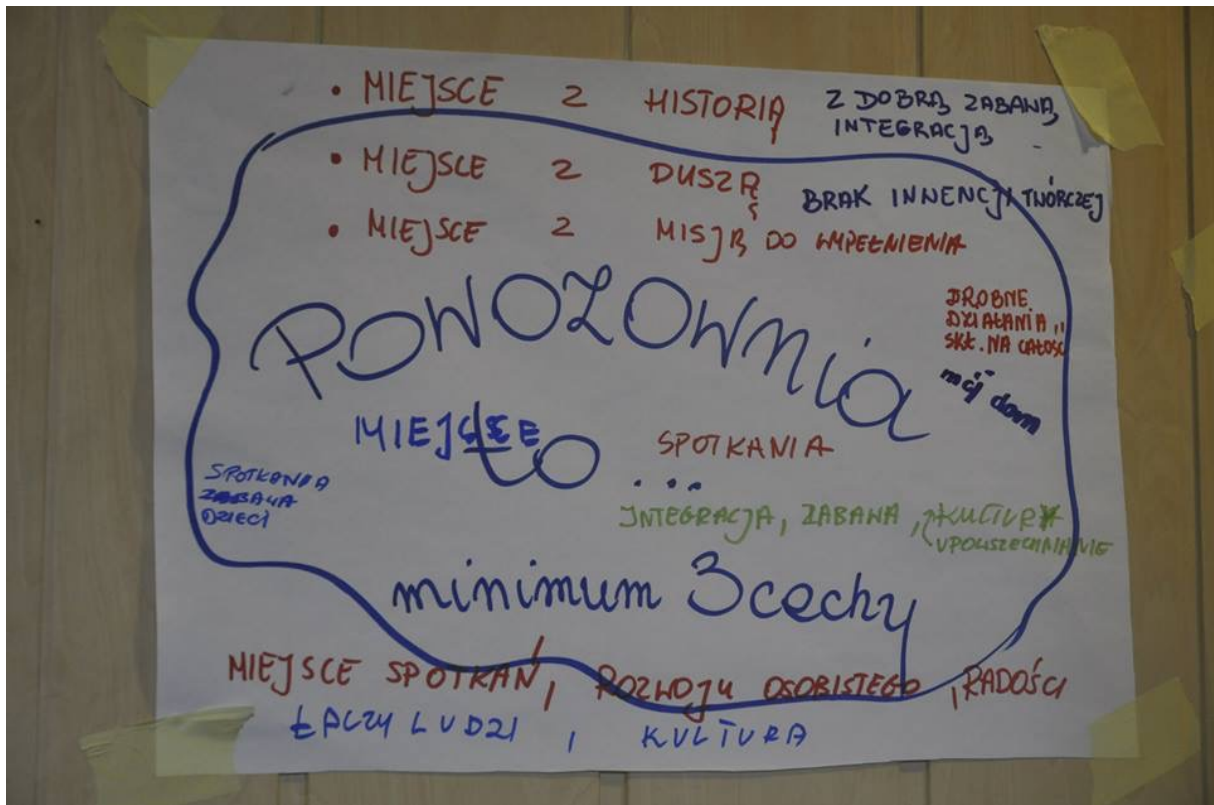 • MIEJSCE Z HISTORIĄ
Z DOBRĄ ZABAWĄ,
INTEGRACJĄ
• MIEJSCE Z DUSZĄ
BRAK INWENCJI TWÓRCZEJ
• MIEJSCE Z MISJĄ DO WYPEŁNIENIA
POWOZOWNIA
DROBNE
DZIAŁANIA,,
SKŁ. NA CAŁOŚĆ
mój dom
MIEJSCE
to ...
SPOTKANIA
SPOTKANIA
ZABAWA
DZIECI
INTEGRACJA, ZABAWA, KULTURY
UPOWSZECHNIANIE
minimum 3 cechy
MIEJSCE SPOTKAŃ, ROZWOJU OSOBISTEGO, RADOŚCI
ŁĄCZY LUDZI, KULTURA